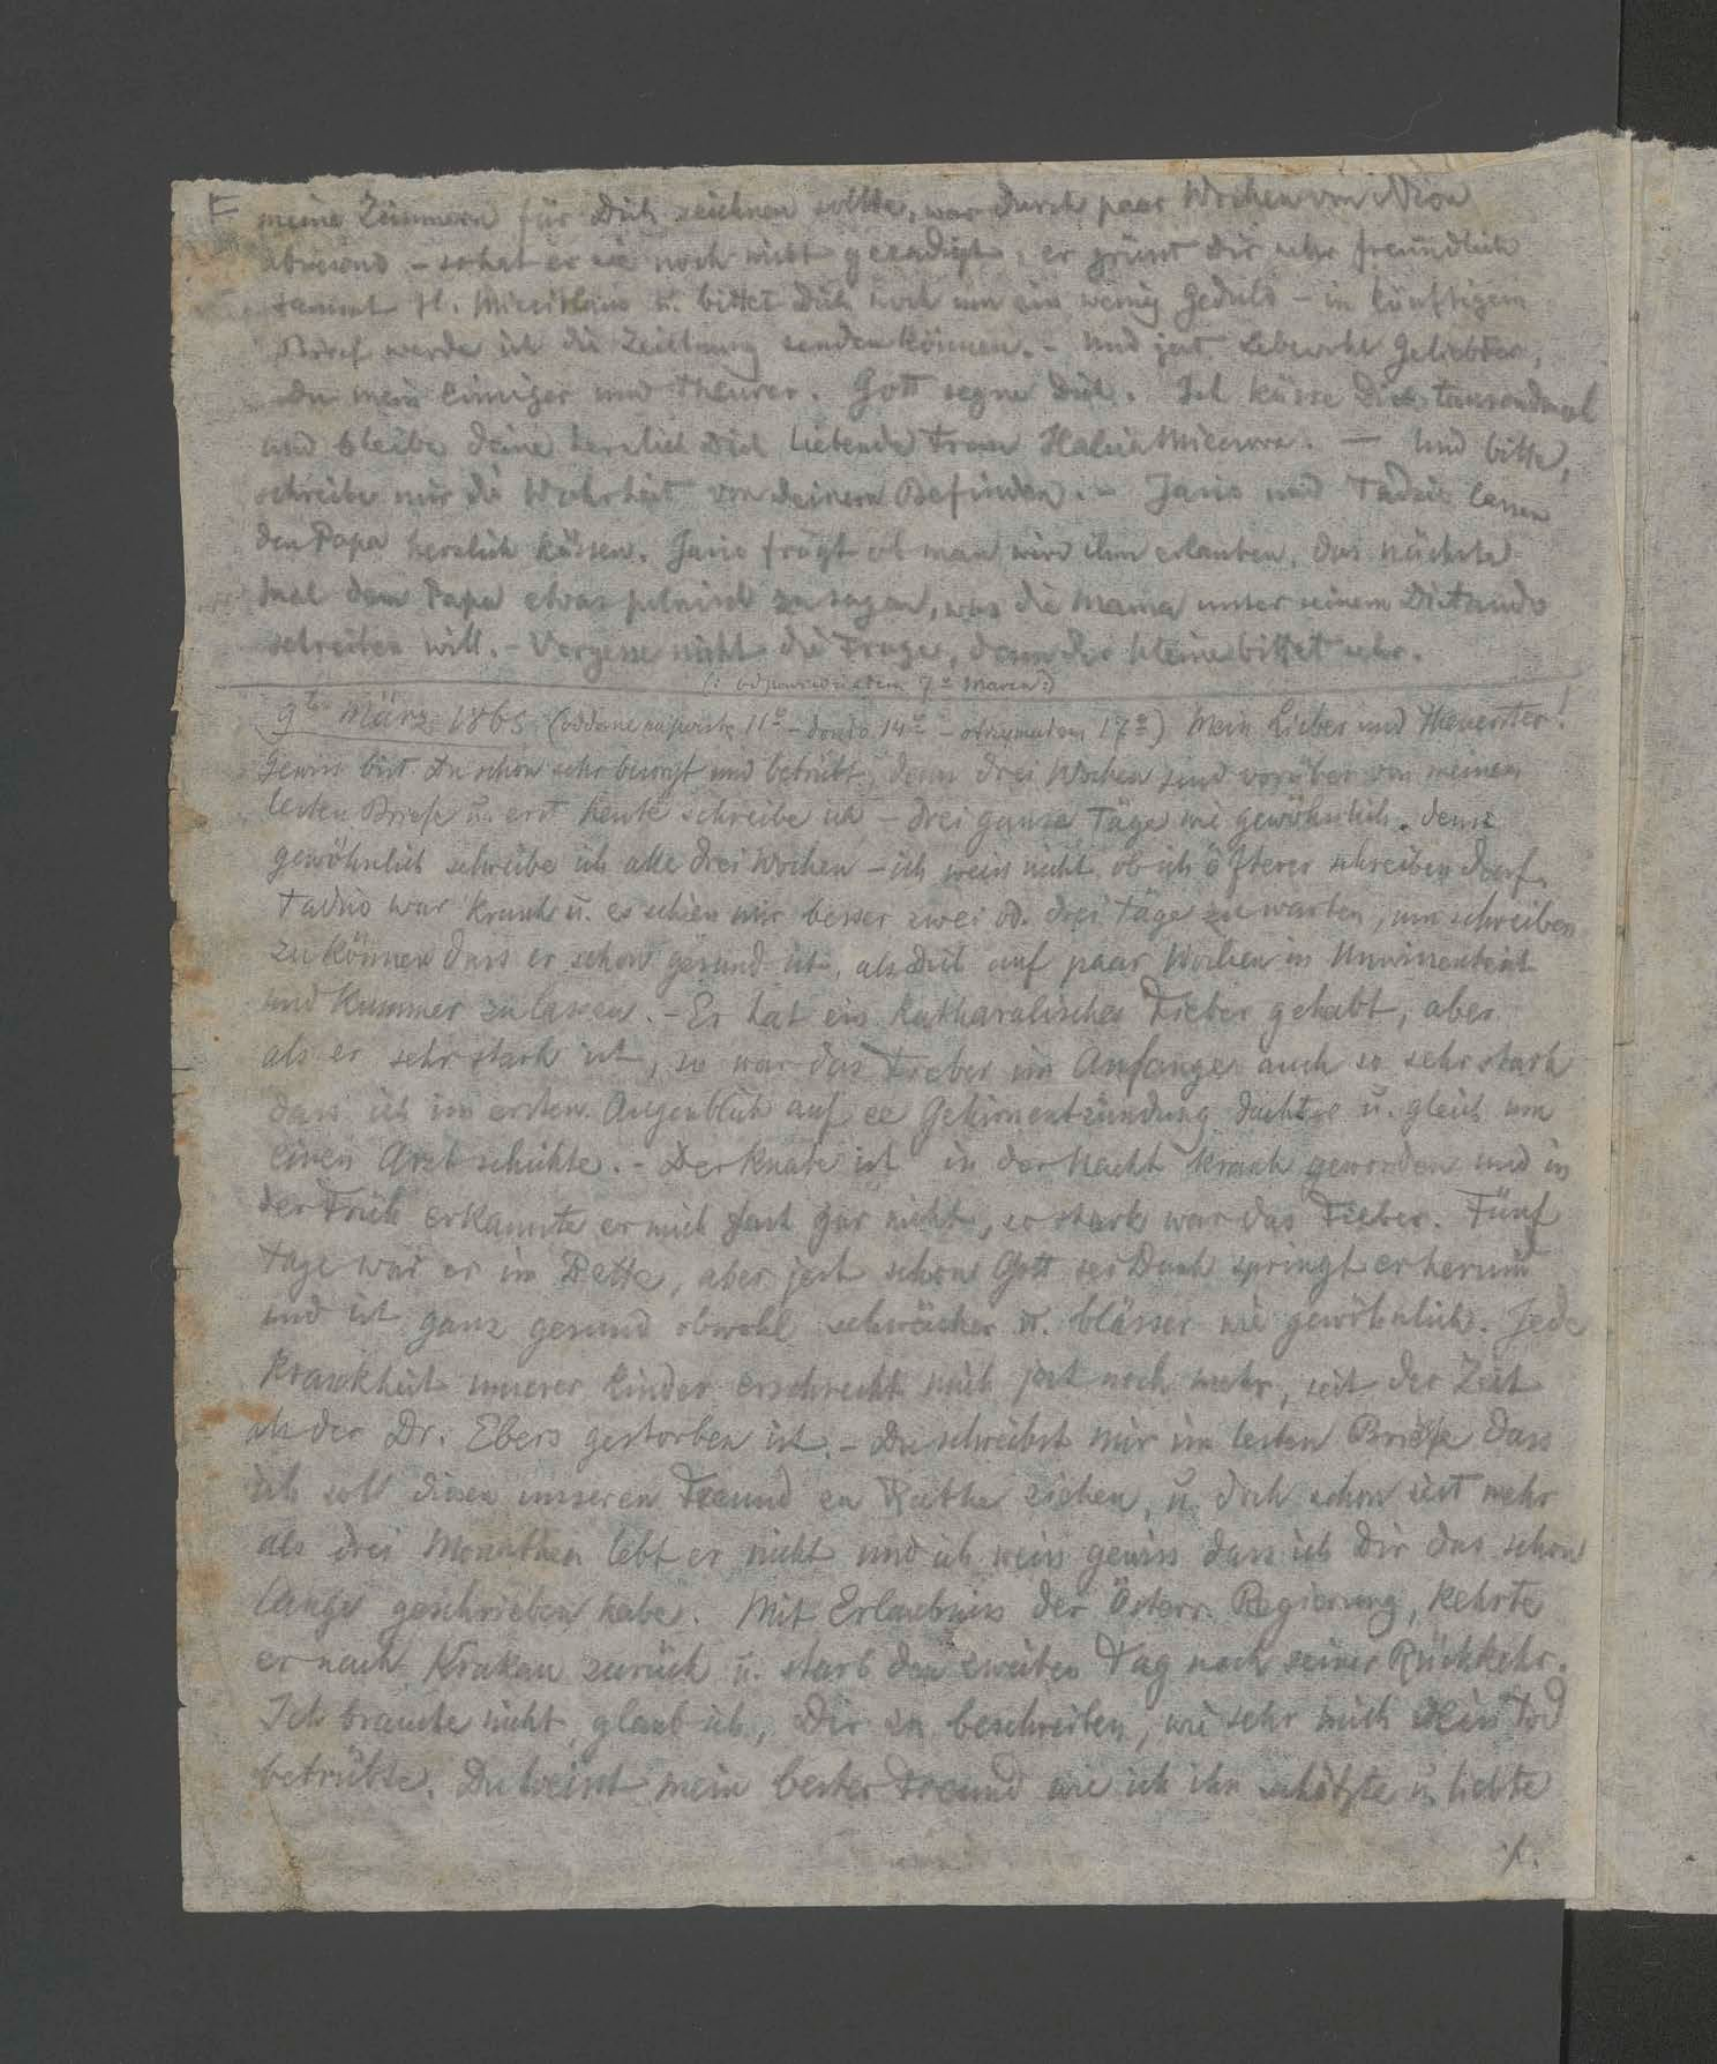 meine Zimmern für Dich zeichnen sollte, war durch paar Wochen von
abwesend – so hat er sie noch nicht geendigt, er grüsst Dir sehr freundlich
sammt H. u. bittet Dich noch um ein wenig Geduld – in künftigem
Brief werde ich die Zeichnung senden können. – Und jezt Lebewohl Geliebter,
Du mein Einziger und Theurer. Gott segne Dich. Ich küsse Dich tausendmal
und bleibe Deine herzlich Dich liebende Frau Halina –– Und bitte,
schreibe mir die Wahrheit von Deinem Befinden. – Janio und Tadzio lassen
den Papa herzlich küssen. Janio frägt ob man wird ihm erlauben, das nächste
mal dem Papa etwas polnisch zu sagen, was die Mama unter seinem Dictando
schreiben will. – Vergesse nicht die Frage, denn der Kleine bittet sehr.
(: odpowiedziałem 9º Marca :)
9ten März 1865 (oddane na pocztę 11º – doszło 14º – otrzymałem 17º) Mein Lieber und Theuerster!
Gewiss bist Du schon sehr besorgt und betrübt, denn drei Wochen sind vorüber von meinem
lezten Briefe u. erst heute schreibe ich – drei ganze Täge wie gewöhnlich. denn
gewöhnlich schreibe ich alle drei Wochen – ich weiss nicht, ob ich öfterer schreiben darf.
Tadzio war krank u. es schien mir besser zwei od. drei Täge zu warten, um schreiben
zu können dass er schon gesund ist, als Dich auf paar Wochen in Unwissenheit
und Kummer zu lassen. – Er hat ein katharalisches Fieber gehabt, aber
als er sehr stark ist, so war das Fieber im Anfange auch so sehr stark
dass ich im ersten Augenblick auf ee Gehirnentzündung dachte u. gleich um
einen Arzt schikte. – Der Knabe ist in der Nacht krank geworden und in
der Früh erkannte er mich fast gar nicht, so stark war das Fieber. Fünf
Tage war er im Bette, aber jezt schon Gott sei Dank springt er herum
und ist ganz gesund obwohl schwächer u. blässer wie gewöhnlich. Jede
Krankheit unserer Kinder erschreckt mich jezt noch mehr, seit der Zeit
als der Dr. Ebers gestorben ist. – Du schreibst mir im lezten Briefe dass
ich soll diesen unseren Freund zu Rathe ziehen, u. doch schon seit mehr
als drei Monathen lebt er nicht und ich weiss gewiss dass ich Dir das schon
lange geschrieben habe. Mit Erlaubniss der Österr. Regierung, kehrte
er nach Krakau zurück u. starb den zweiten Tag nach seiner Rückkehr.
Ich brauche nicht, glaub ich, Dir zu beschreiben, wie sehr mich sein Tod
betrübte. Du weisst mein bester Freund wie ich ihn schätzte u. liebte
./.